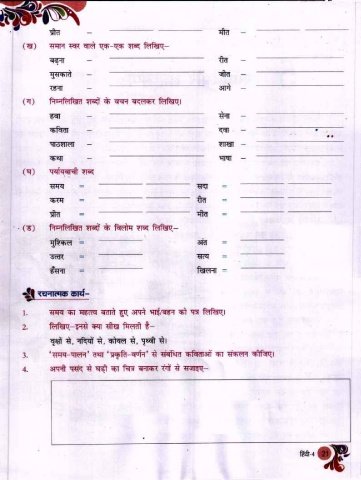 प्रीत – मीत –
(ख) समान स्वर वाले एक-एक शब्द लिखिए–
बढ़ना – रीत –
मुसकाते – जीत –
रहना – आगे –
(ग) निम्नलिखित शब्दों के वचन बदलकर लिखिए।
हवा – सेना –
कविता – दवा –
पाठशाला – शाखा –
कथा – भाषा –
(घ) पर्यायवाची शब्द
समय = सदा =
करम = रीत =
प्रीत = मीत =
(ङ) निम्नलिखित शब्दों के विलोम शब्द लिखिए–
मुश्किल = अंत =
उत्तर = सत्य =
हँसना = खिलना =
रचनात्मक कार्य–
1. समय का महत्व बताते हुए अपने भाई/बहन को पत्र लिखिए।
2. लिखिए–इनसे क्या सीख मिलती है–
वृक्षों से, नदियों से, कोयल से, पृथ्वी से।
3. 'समय-पालन' तथा 'प्रकृति-वर्णन' से संबंधित कविताओं का संकलन कीजिए।
4. अपनी पसंद से घड़ी का चित्र बनाकर रंगों से सजाइए–
हिंदी-4 21